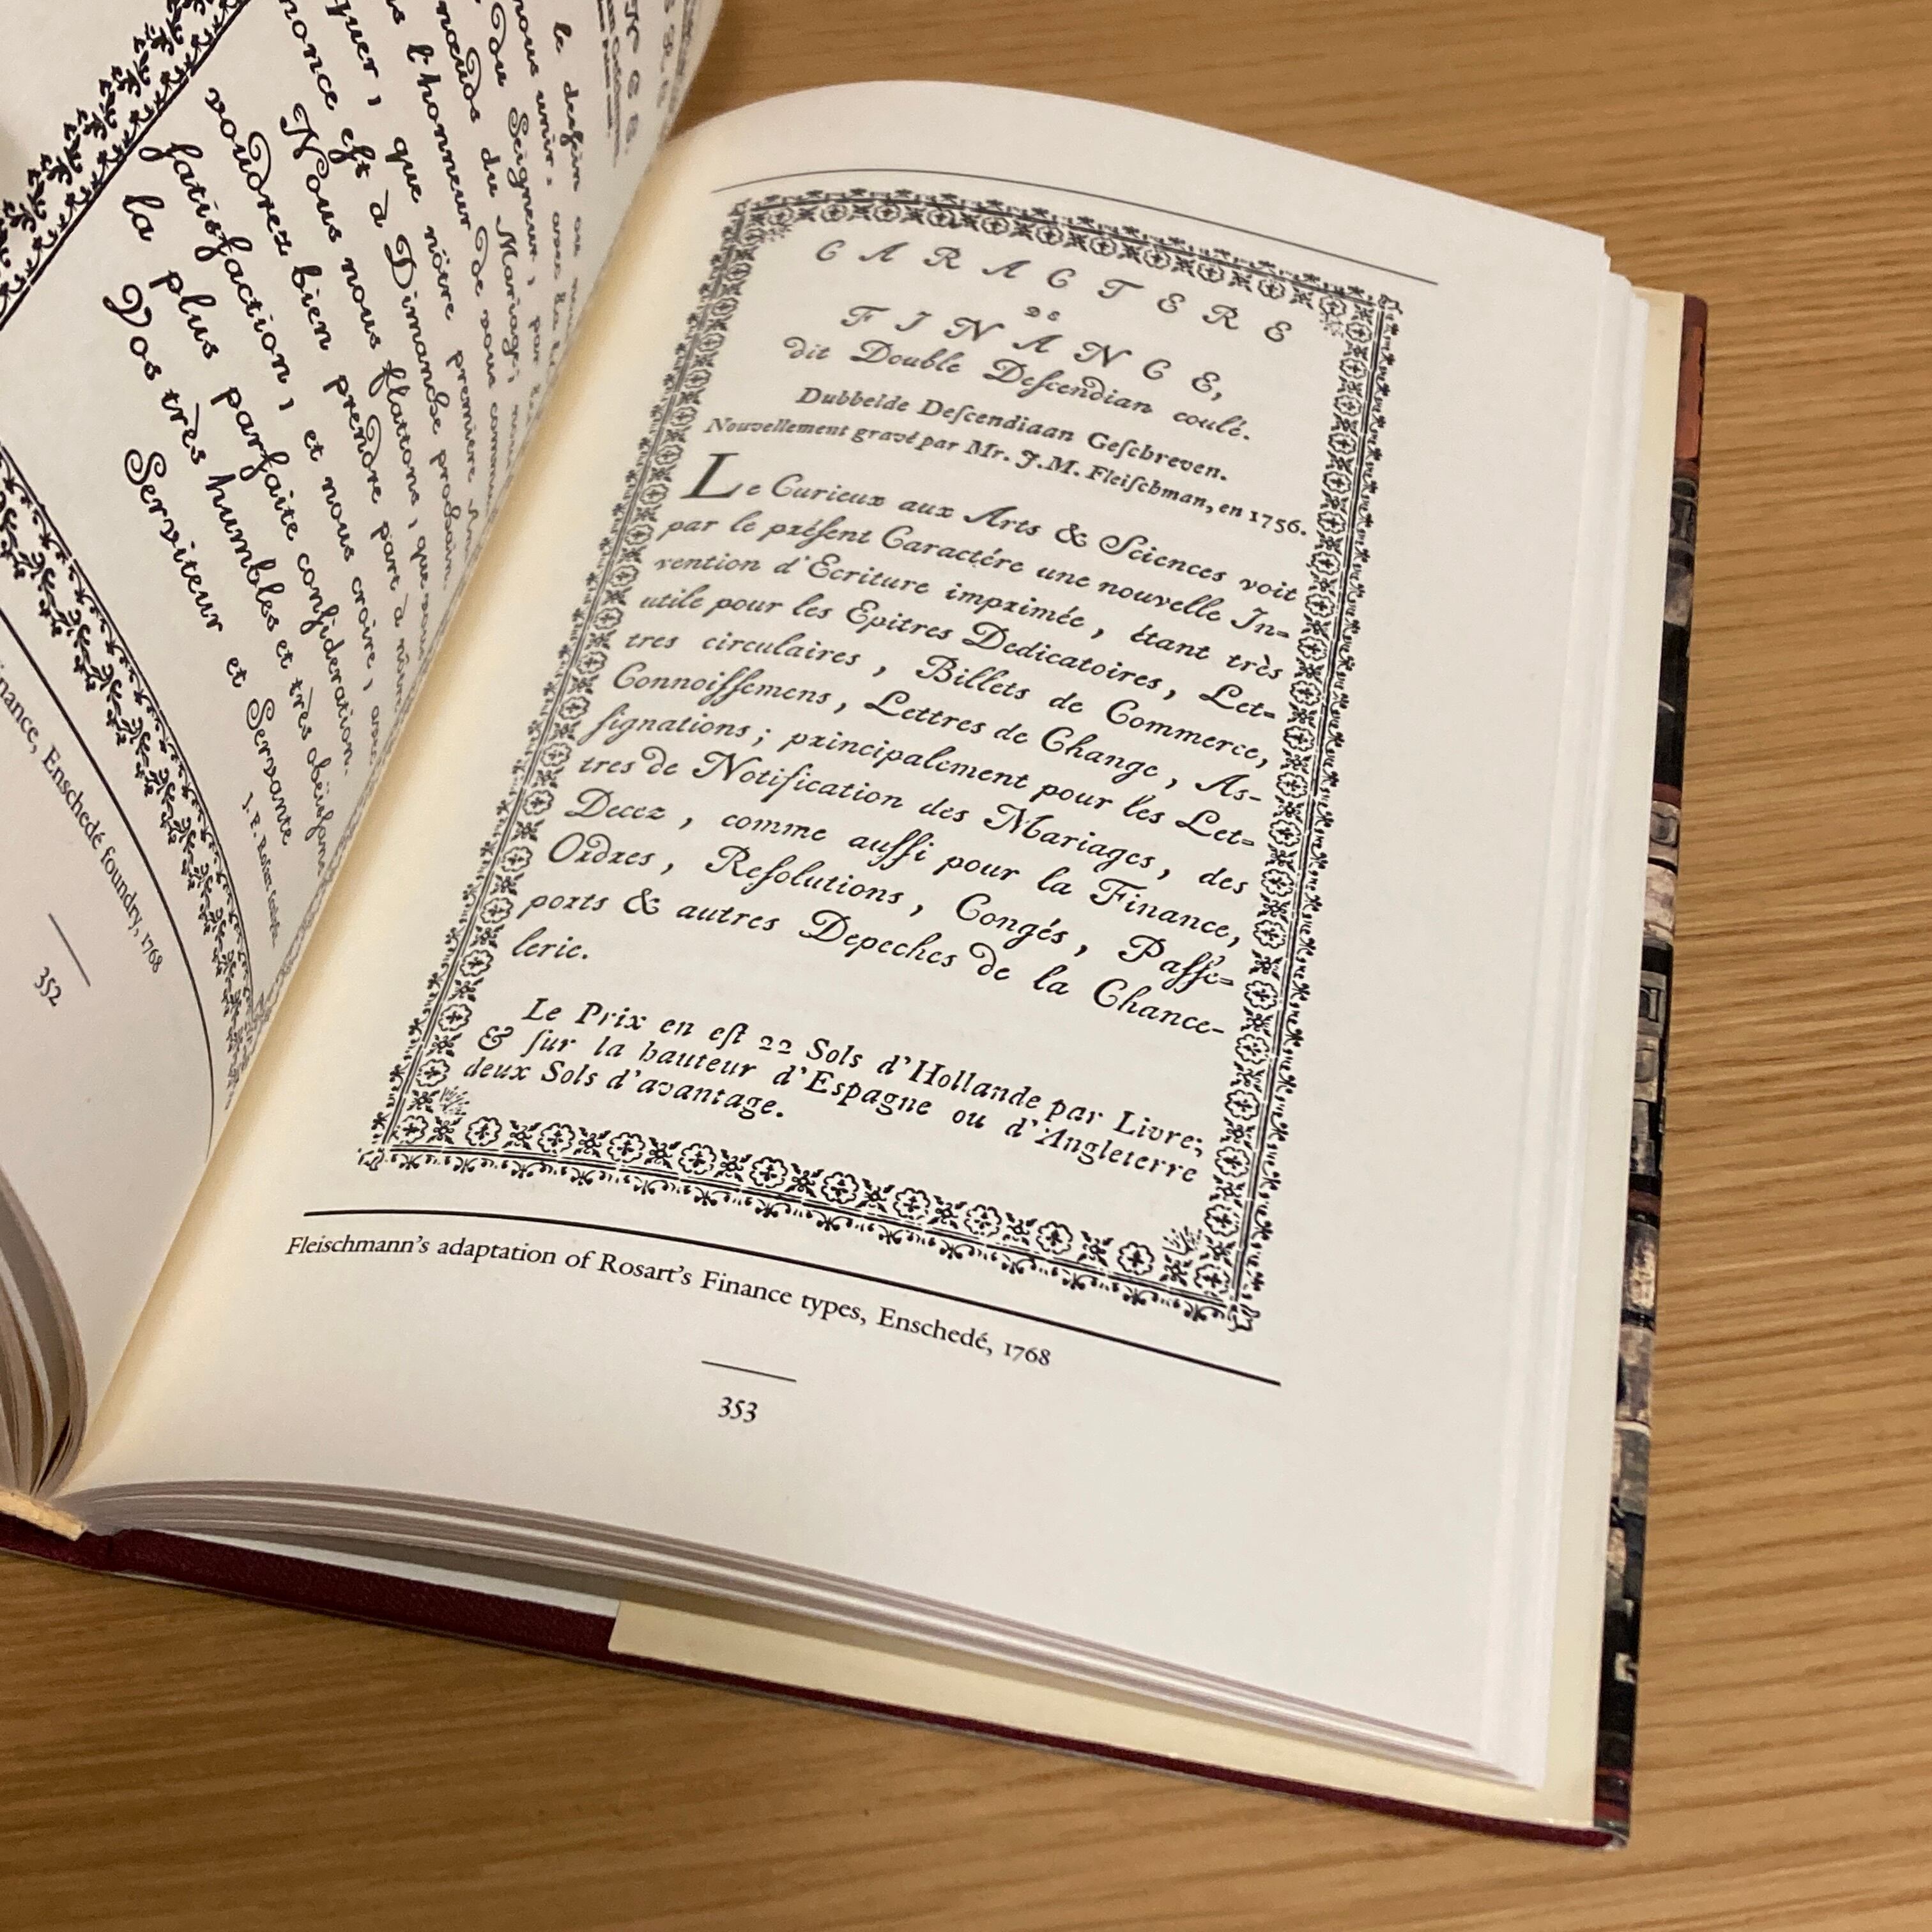 le deſſein
nous unir, avec la
du Seigneur, par
nœuds du Mariage; nous
l'honneur de vous
quer, que nôtre premiere
nonce eſt à Dimanche prochain.
Nous nous flattons, que vous
voudrez bien prendre part à nôtre
ſatisfaction, et nous croire, avec
la plus parfaite conſideration.
Vos très humbles et très
Serviteur et Servante
Enschedé foundry, 1768
352
CARACTERE
DE
FINANCE,
dit Double Deſcendian coulé.
Dubbelde Deſcendiaan Geſchreven.
Nouvellement gravé par Mr. J.M. Fleiſchman, en 1756.
Le Curieux aux Arts & Sciences voit
par le préſent Caractére une nouvelle In=
vention d'Ecriture imprimée, étant très
utile pour les Epitres Dedicatoires, Let=
tres circulaires, Billets de Commerce,
Connoiſſemens, Lettres de Change, As-
ſignations; principalement pour les Let=
tres de Notification des Mariages, des
Decez, comme auſſi pour la Finance,
Ordres, Reſolutions, Congés, Paſſe=
ports & autres Depeches de la Chance-
lerie.
Le Prix en eſt 22 Sols d'Hollande par Livre;
& ſur la hauteur d'Espagne ou d'Angleterre
deux Sols d'avantage.
Fleischmann's adaptation of Rosart's Finance types, Enschedé, 1768
353